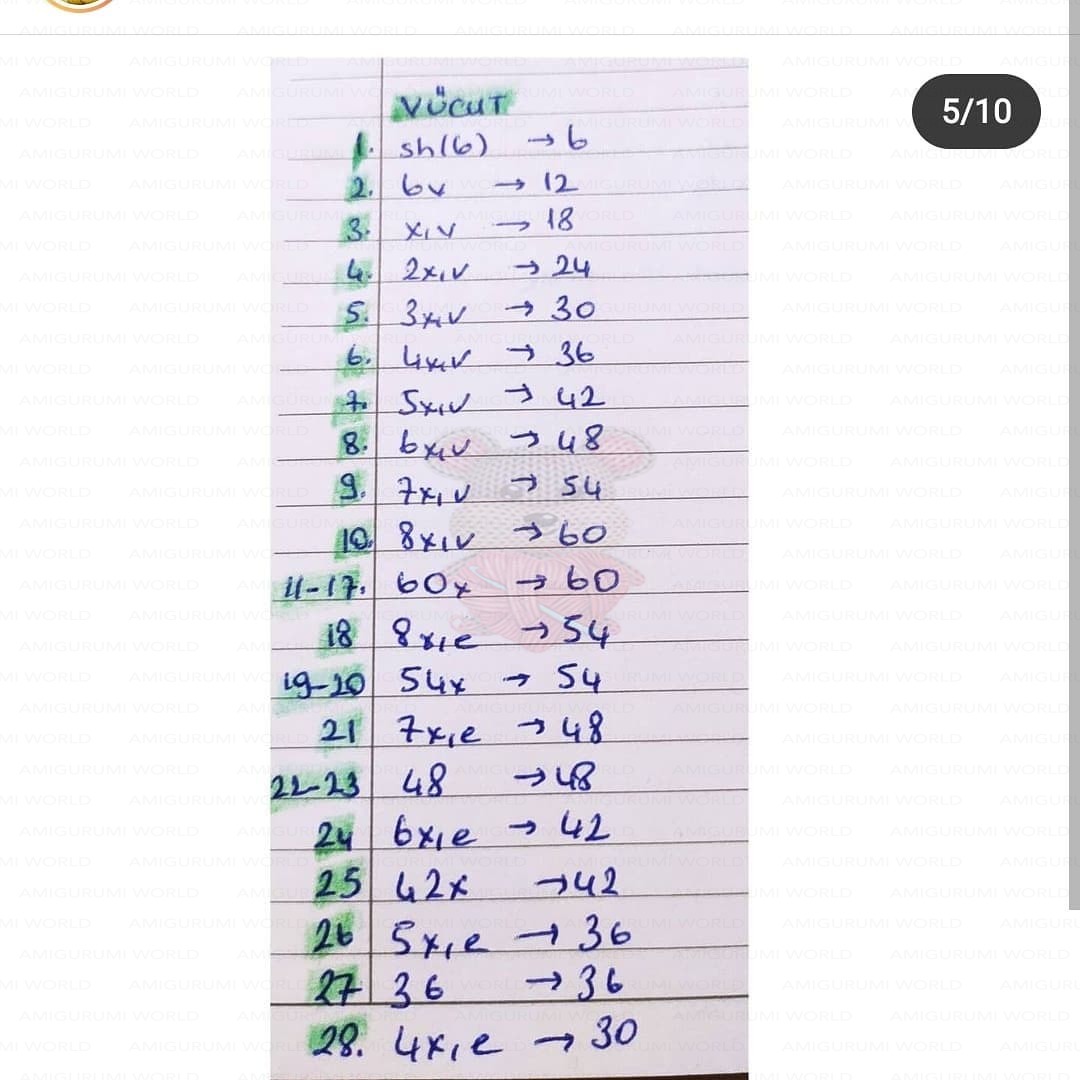 5/10
VÜCUT
1. sh(6) → 6
2. 6v → 12
3. x,v → 18
4. 2x,v → 24
5. 3x,v → 30
6. 4x,v → 36
7. 5x,v → 42
8. 6x,v → 48
9. 7x,v → 54
10. 8x,v → 60
11-17. 60x → 60
18 8x,e → 54
19-20 54x → 54
21 7x,e → 48
22-23 48 → 48
24 6x,e → 42
25 42x → 42
26 5x,e → 36
27 36 → 36
28. 4x,e → 30
AMIGURUMI WORLD